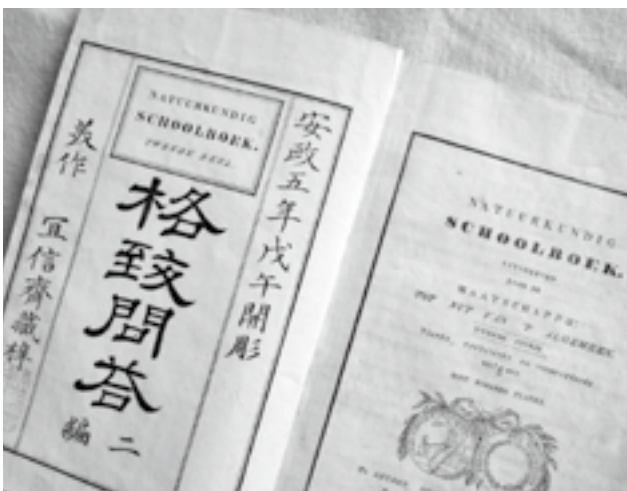 安政五年戊午開彫
NATUURKUNDIG
SCHOOLBOEK.
TWEEDE DEEL.
格致問答
二編
美作 宜信齋藏梓
NATUURKUNDIG
SCHOOLBOEK.
UITGEGEVEN
DOOR DE
MAATSCHAPPIJ:
TOT NUT VAN 'T ALGEMEEN